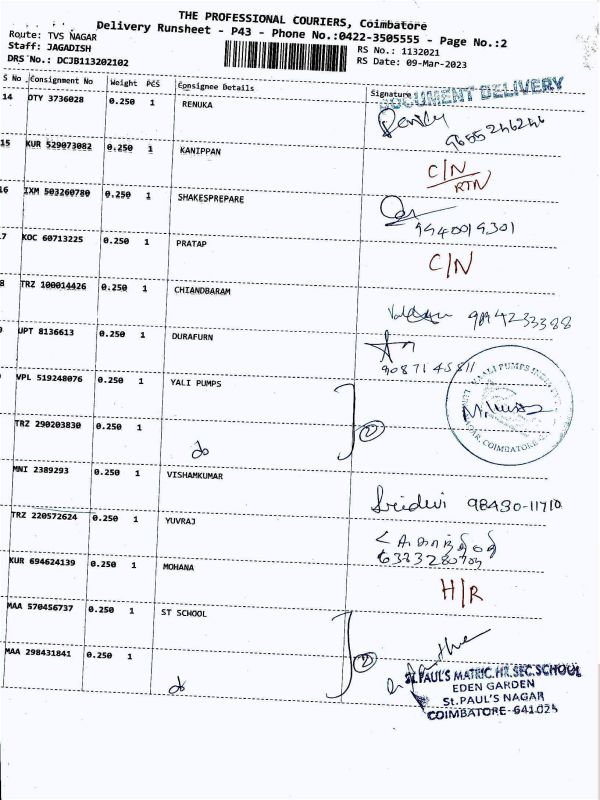 THE PROFESSIONAL COURIERS, Coimbatore
Delivery Runsheet - P43 - Phone No.:0422-3505555 - Page No.:2
Route: TVS NAGAR
Staff: JAGADISH
DRS No.: DCJB113202102
RS No.: 1132021
RS Date: 09-Mar-2023
S No. Consignment No Weight PCS Consignee Details Signature
DOCUMENT DELIVERY
14 DTY 3736028 0.250 1 RENUKA
9655246246
15 KUR 529073082 0.250 1 KANIPPAN C/N
RTN
16 IXM 503260780 0.250 1 SHAKESPREPARE
9940019301
7 KOC 60713225 0.250 1 PRATAP C/N
8 TRZ 100014426 0.250 1 CHIANDBARAM 9894233388
JPT 8136613 0.250 1 DURAFURN
9087145811
VPL 519248076 0.250 1 YALI PUMPS 2
TRZ 290203830 0.250 1 do
MNI 2389293 0.250 1 VISHAMKUMAR Sridevi 98430-11710
TRZ 220572624 0.250 1 YUVRAJ
KUR 694624139 0.250 1 MOHANA H/R
MAA 570456737 0.250 1 ST SCHOOL 2
MAA 298431841 0.250 1 do
St.PAUL'S MATRIC.HR.SEC.SCHOOL
EDEN GARDEN
St.PAUL'S NAGAR
COIMBATORE-641025